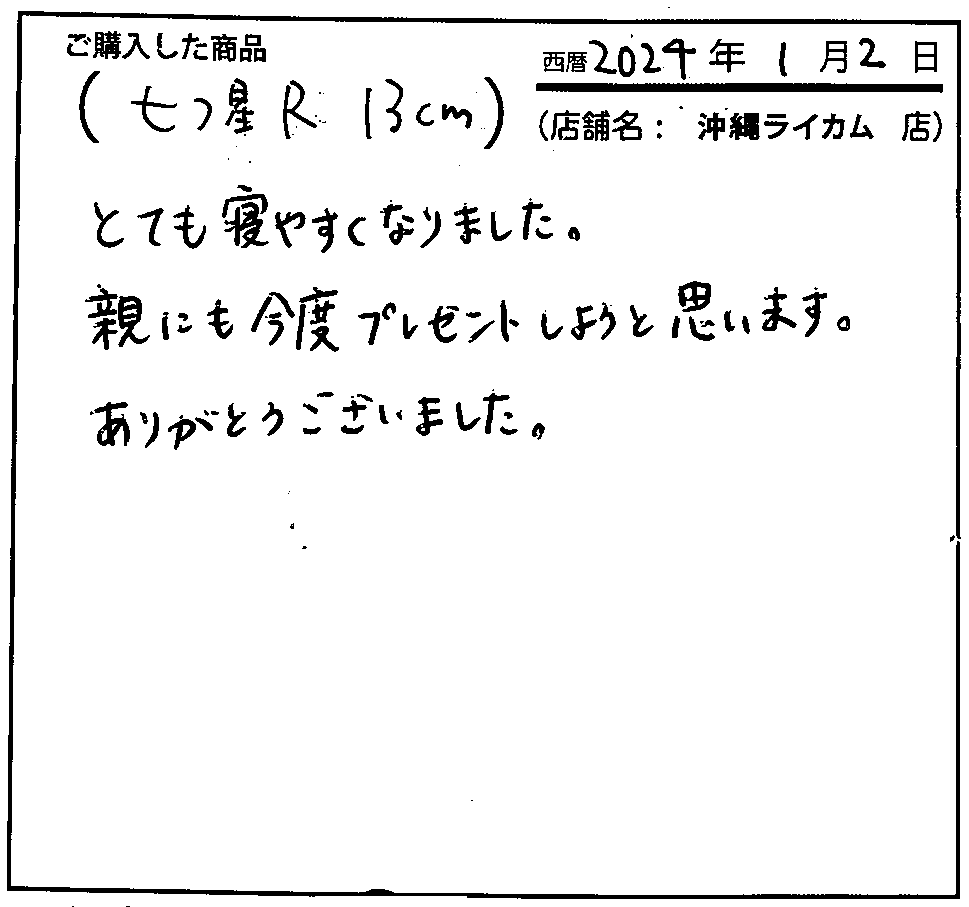 ご購入した商品
西暦2024年 1月2日
(七つ星R 13cm)
(店舗名: 沖縄ライカム 店)
とても寝やすくなりました。
親にも今度プレゼントしようと思います。
ありがとうございました。